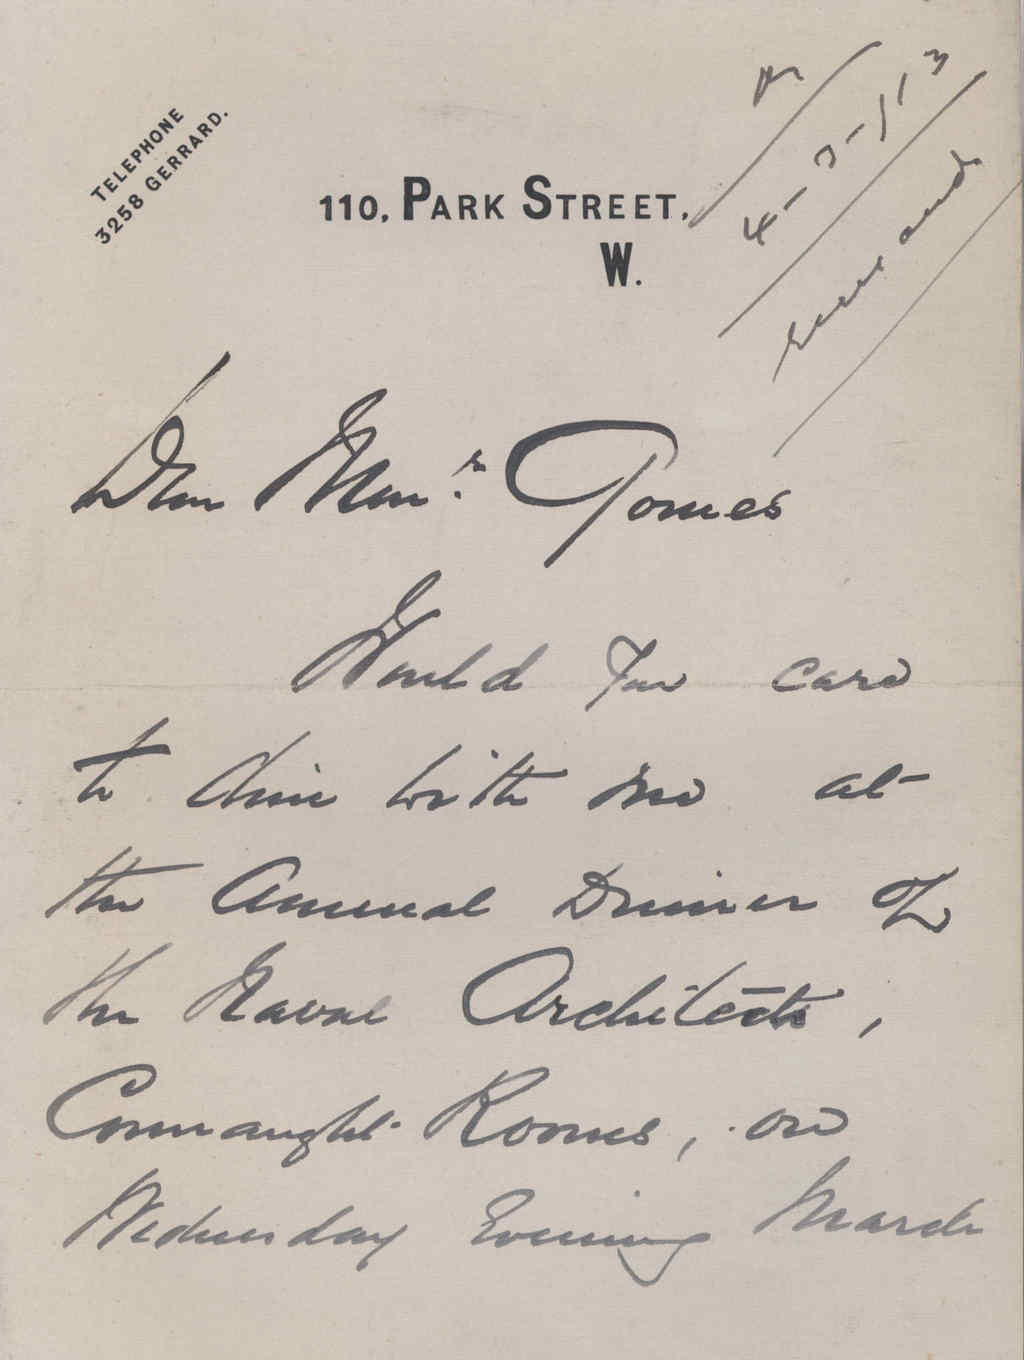 TELEPHONE
3258 GERRARD.
110, PARK STREET,
W.
R
4-3-113
Dear Monr. Gomes
Would you care
to dine with me at
the Annual Dinner of
the Naval Architects,
Connaught Rooms, on
Wednesday Evening March